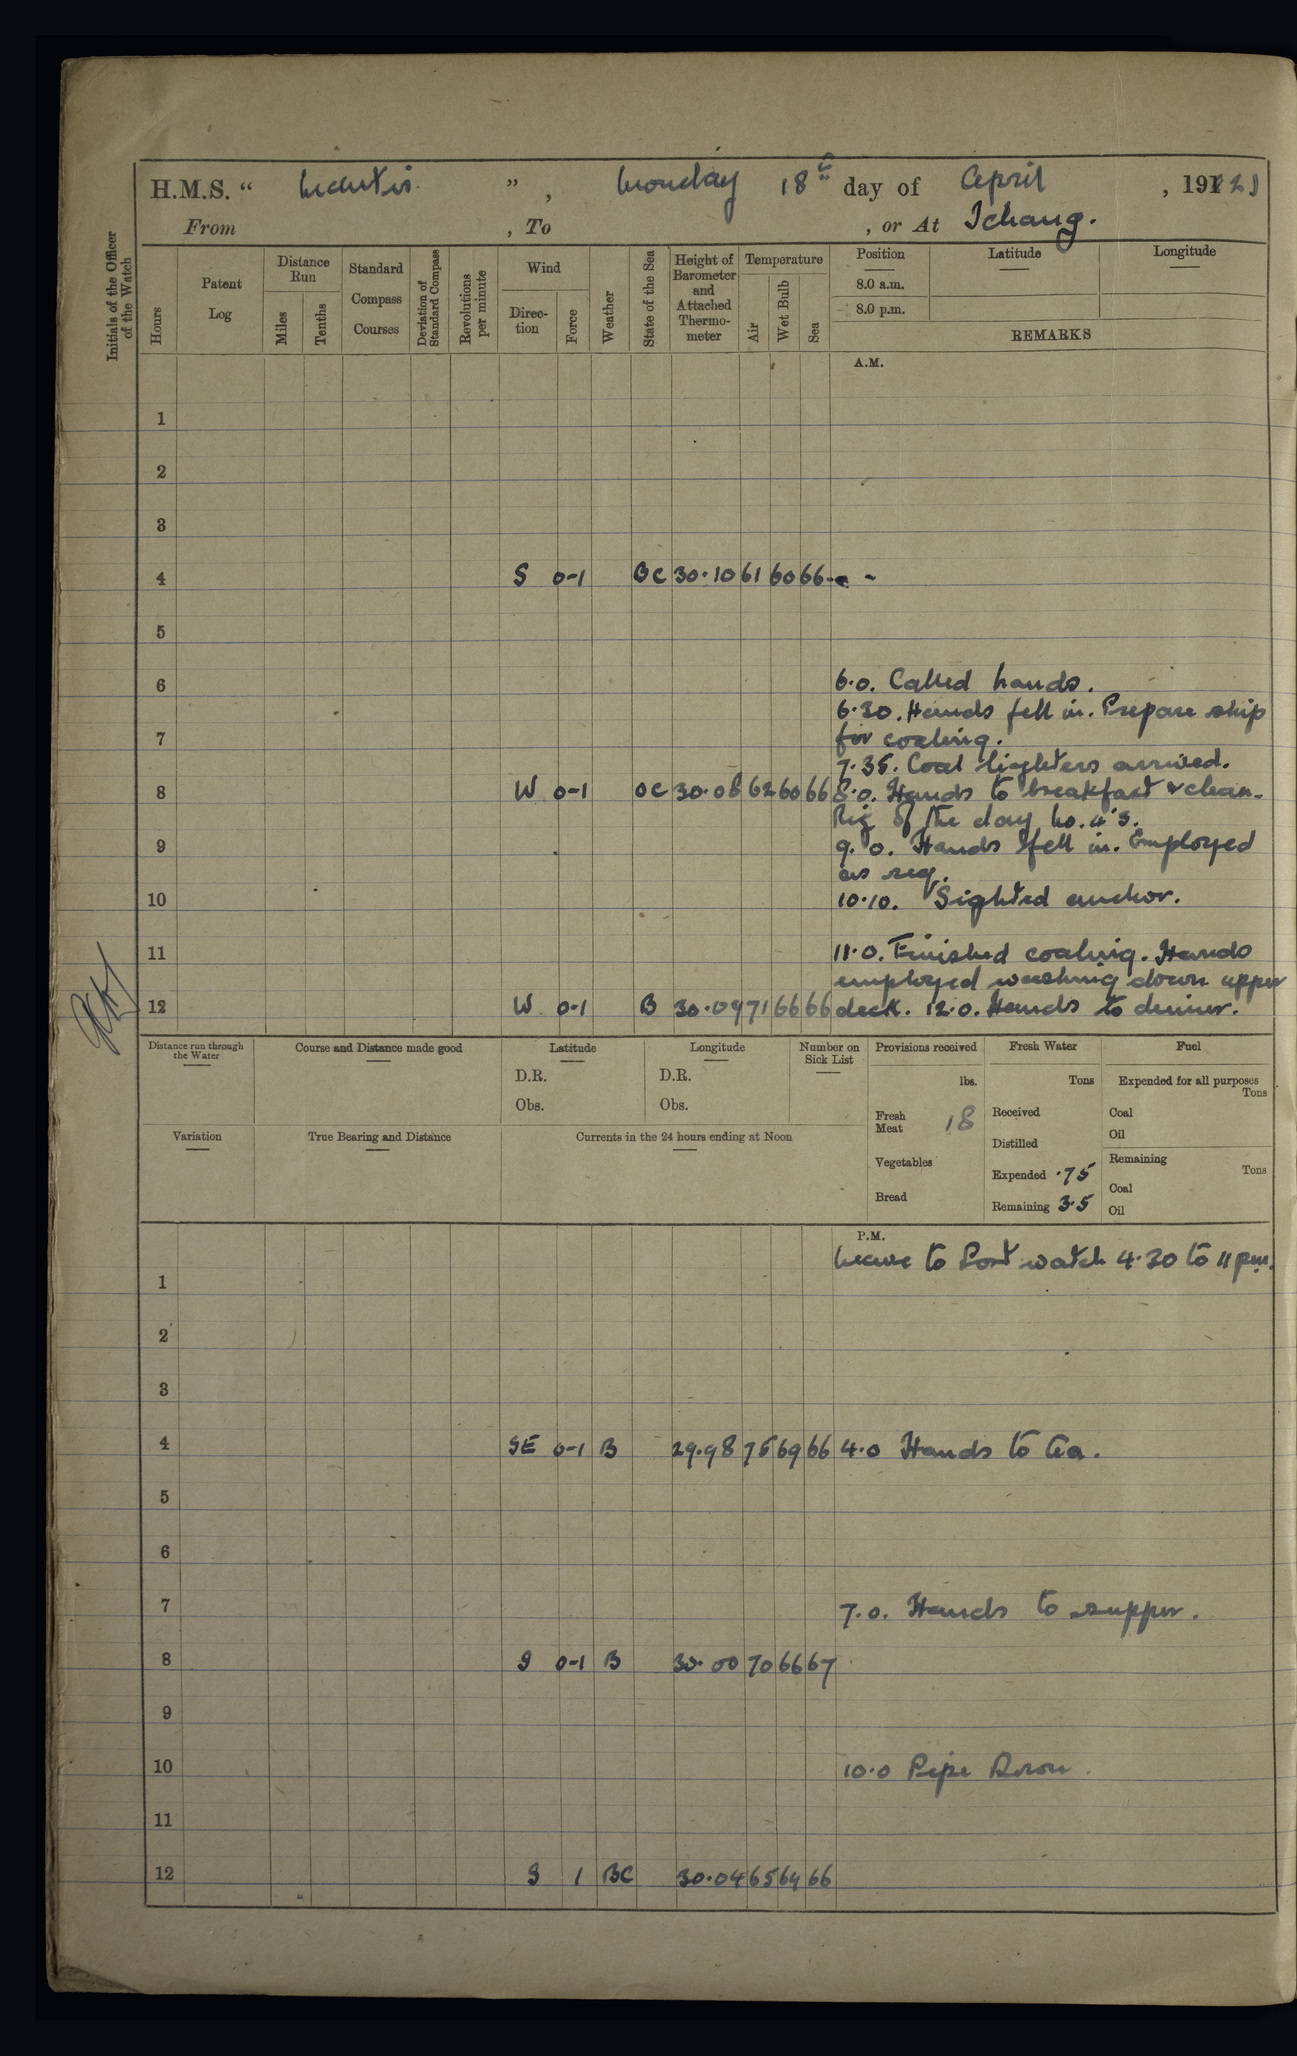 H.M.S. " Mantis " , Monday 18th day of April , 1921
From , To , or At Ichang.
Initials of the Officer of the Watch
Hours
Patent Log
Distance Run
Miles
Tenths
Standard Compass Courses
Deviation of Standard Compass
Revolutions per minute
Wind
Direction
Force
Weather
State of the Sea
Height of Barometer and Attached Thermometer
Temperature
Air
Wet Bulb
Sea
Position
8.0 a.m.
8.0 p.m.
Latitude
Longitude
REMARKS
A.M.
1
2
3
4 S 0-1 BC 30.10 61 60 66
5
6 6.0. Called hands.
6.30. Hands fell in. Prepare ship
7 for coaling.
7.35. Coal lighters arrived.
8 W 0-1 OC 30.08 62 60 66 8.0. Hands to breakfast & clean.
Rig of the day No. 4's.
9 9.0. Hands fell in. Employed
as req.
10 10.10. Sighted anchor.
11 11.0. Finished coaling. Hands
employed washing down upper
12 W 0-1 B 30.09 71 66 66 deck. 12.0. Hands to dinner.
Distance run through the Water
Course and Distance made good
Latitude
D.R.
Obs.
Longitude
D.R.
Obs.
Number on Sick List
Provisions received
lbs.
Fresh Meat 18
Vegetables
Bread
Fresh Water
Tons
Received
Distilled
Expended .75
Remaining 3.5
Fuel
Expended for all purposes
Tons
Coal
Oil
Remaining
Tons
Coal
Oil
Variation
True Bearing and Distance
Currents in the 24 hours ending at Noon
P.M.
Leave to Port watch 4.30 to 11 pm.
1
2
3
4 SE 0-1 B 29.98 75 69 66 4.0 Hands to tea.
5
6
7 7.0. Hands to supper.
8 S 0-1 B 30.00 70 66 67
9
10 10.0 Pipe Down.
11
12 S 1 BC 30.04 65 64 66